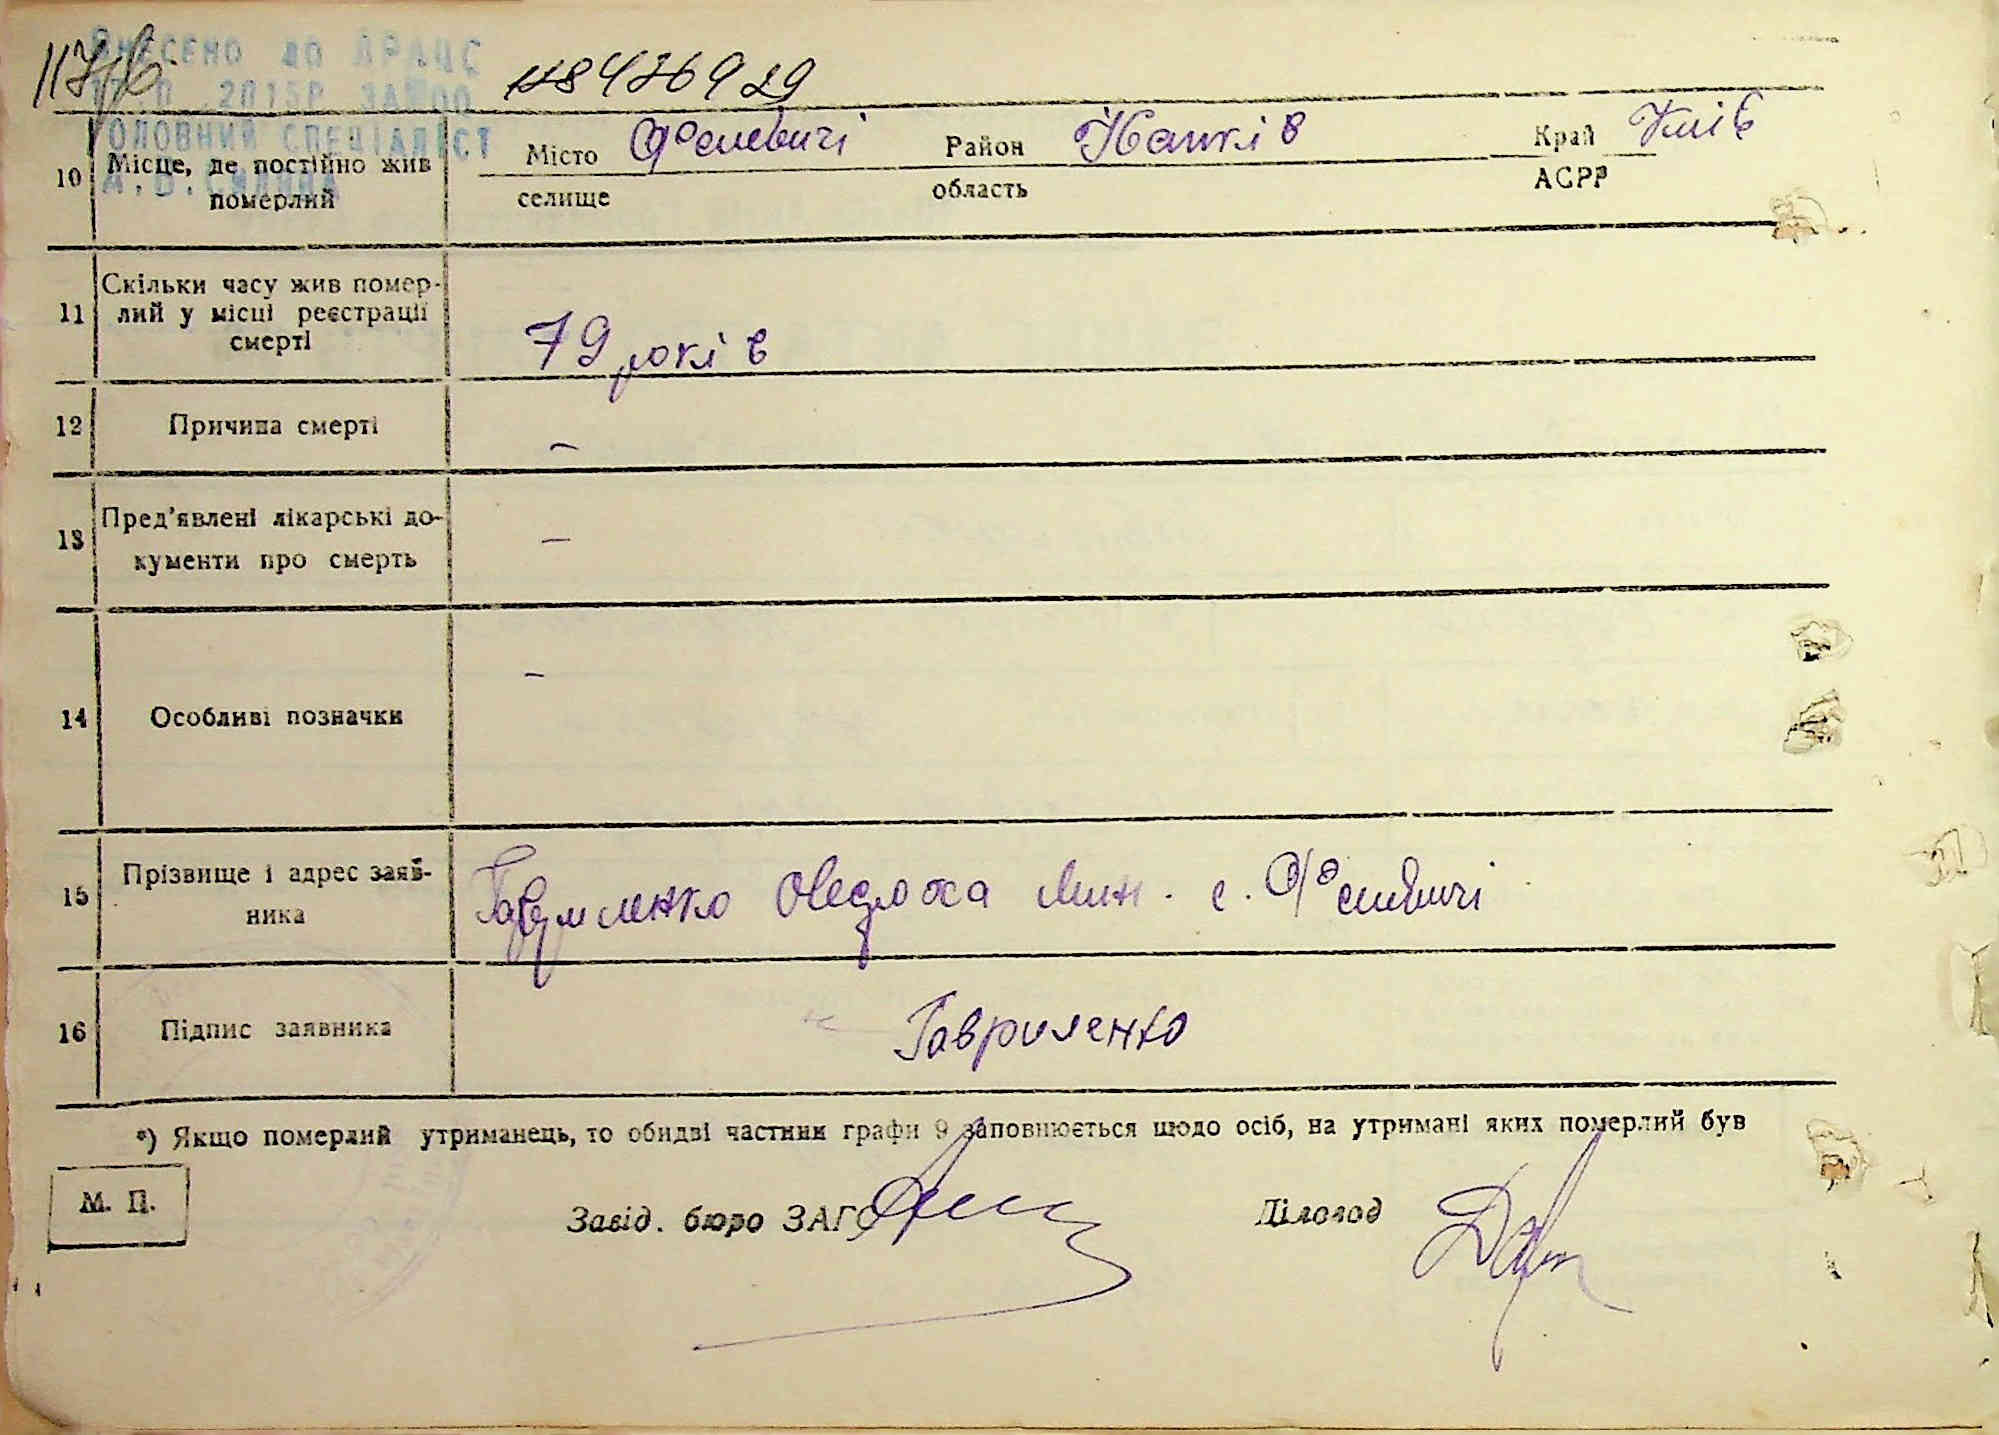 ВНЕСЕНО ДО ДРАЦС
2015Р. ЗА
ГОЛОВНИЙ СПЕЦІАЛІСТ
А.В.
10 Місце, де постійно жив померлий
Місто селище
Район Канів область
Край Київ АСРР
11 Скільки часу жив помер-
лий у місці реєстрації
смерті
79 років
12 Причина смерті –
13 Пред'явлені лікарські до-
кументи про смерть –
14 Особливі позначки –
15 Прізвище і адрес заяв-
ника
Гавриленко с.
16 Підпис заявника Гавриленко
*) Якщо померлий утриманець, то обидві частини графи 9 заповнюється щодо осіб, на утримані яких померлий був
М. П. Завід. бюро ЗАГС Діловод